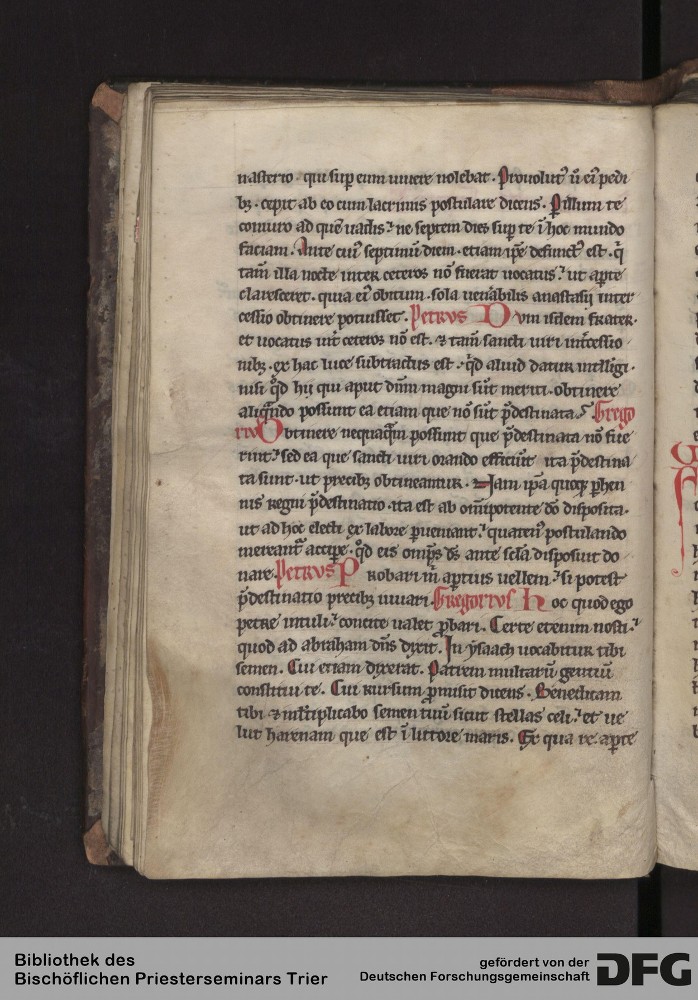 nasterio · qui sup eum uiuere nolebat · Prouolut᷒ ū ei᷒ pedi
bꝫ · cepit ab eo cum lacrimis postulare dicens᷒. P illum te
coniuro ad quē uadis ne septem dies sup te ī hoc mundo
faciam. Ante cui᷒ septimū diem · etiam ipē defunct᷒ est · q̄
tam̄ illa nocte inter ceteros nō fuerat uocatus ut apte
claresceret · quia ei᷒ obitum · sola uenābilis anastasij inter
cessio obtinere potuisset. Petrvs Dvm isdem frater
et uocatus int̄ ceteros nō est · ⁊ tam̄ sancti uiri int̄cessio
nibꝫ · ex hac luce subtractus est · qͥd aliud datur intelligi ·
nisi qd̄ hij qui aput dn̄m magni sūt meriti · obtinere
aliqn̄do possunt ea etiam que nō sūt p̄destinata. Grego
rivs Obtinere nequaqm̄ possunt que p̄destinata nō fue
rint sed ea que sancti uiri orando efficiūt ita p̄destina
ta sunt · ut precibꝫ obtineantur · Nam ip̄a quoqꝫ ꝑhen
nis regni p̄destinatio · ita est ab om̄ipotente dō disposita ·
ut ad hoc electi ex labore ꝑueniant quaten᷒ postulando
mereant᷒ accipe · qd̄ eis omp̄s ds̄ ante scl̄a disposuit do
nare. Petrvs Probari m̄ apertius uellem si potest
p̄destinatio precibꝫ iuuari. Gregorivs Hoc quod ego
petre intuli concite ualet ꝓbari. Certe etenim nosti
quod ad abraham dn̄s dixit. In ysaach uocabitur tibi
semen. Cui etiam dixerat. Patrem multarū gentiū
constitui te. Cui rursum ꝓmisit dicens. Benedicam
tibi ⁊ mlt̄iplicabo semen tuū sicut stellas celi et ue
lut harenam que est ī littore maris. Ex qua re apte
Bibliothek des
Bischöflichen Priesterseminars Trier
gefördert von der
Deutschen Forschungsgemeinschaft
DFG